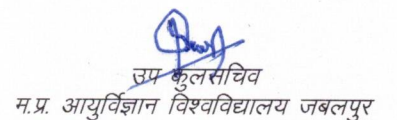 उप कुलसचिव
म.प्र. आयुर्विज्ञान विश्वविद्यालय जबलपुर